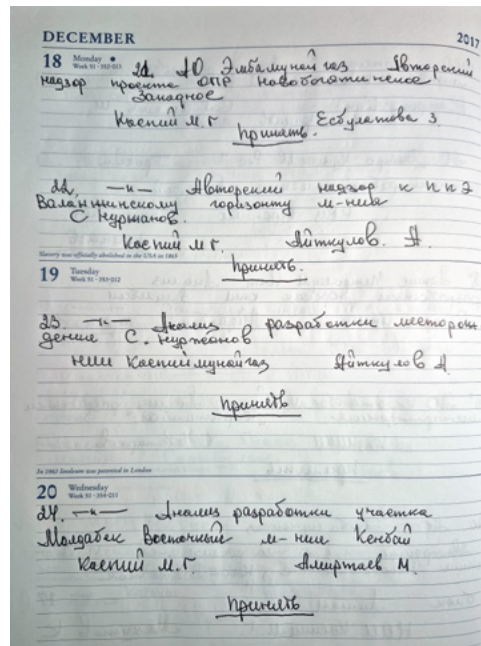 DECEMBER 2017
18 Monday
Week 51 · 352-013
21. АО Эмбамунайгаз Авторский
надзор проекта ОПР Новобогатинское
Западное
Каспий М.Г Есбулатова З.
Принять.
22. —"— Авторский надзор к ППЭ
Валанжинскому горизонту м-ния
С Нуржанов.
Каспий МГ. Айткулов. А.
Slavery was officially abolished in the USA in 1865
Принять.
19 Tuesday
Week 51 · 353-012
23. —"— Анализ разработки месторож
дение С. Нуржанов
НИИ Каспиймунайгаз Айткулов А
Принять
In 1863 linoleum was patented in London
20 Wednesday
Week 51 · 354-011
24. —"— Анализ разработки участка
Молдабек Восточный м-нии Кенбай
Каспий М.Г. Амиртаев М.
Принять